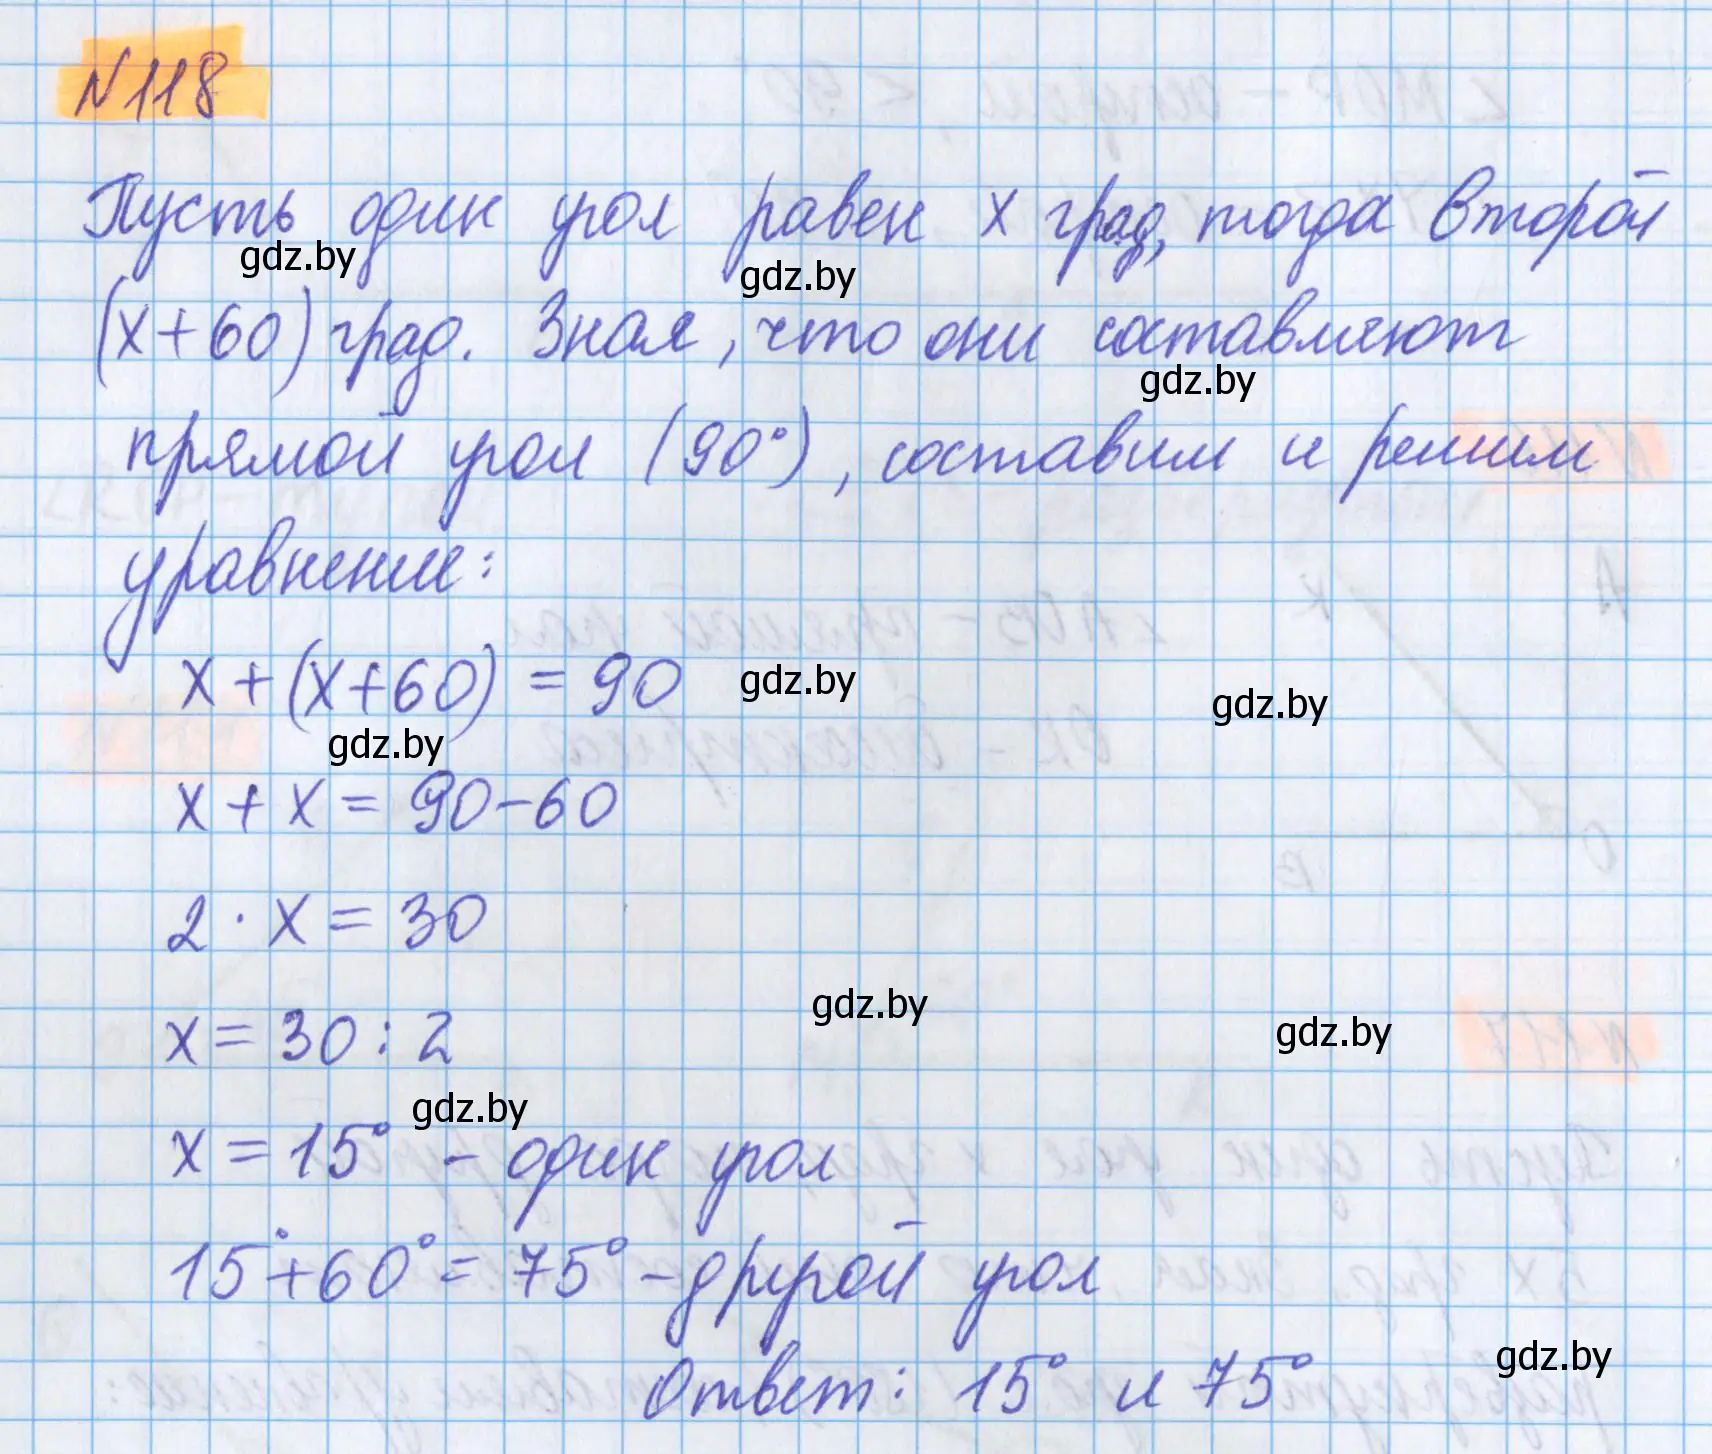 N118
Пусть один угол равен x град, тогда второй
gdz.by gdz.by
(x+60) град. Зная, что они составляют
gdz.by
прямой угол (90°), составим и решим
уравнение:
x+(x+60) = 90 gdz.by gdz.by
gdz.by
x+x = 90-60
2 · x = 30
gdz.by gdz.by
x = 30 : 2
gdz.by
x = 15° - один угол
15°+60° = 75° - другой угол
gdz.by
Ответ: 15° и 75°